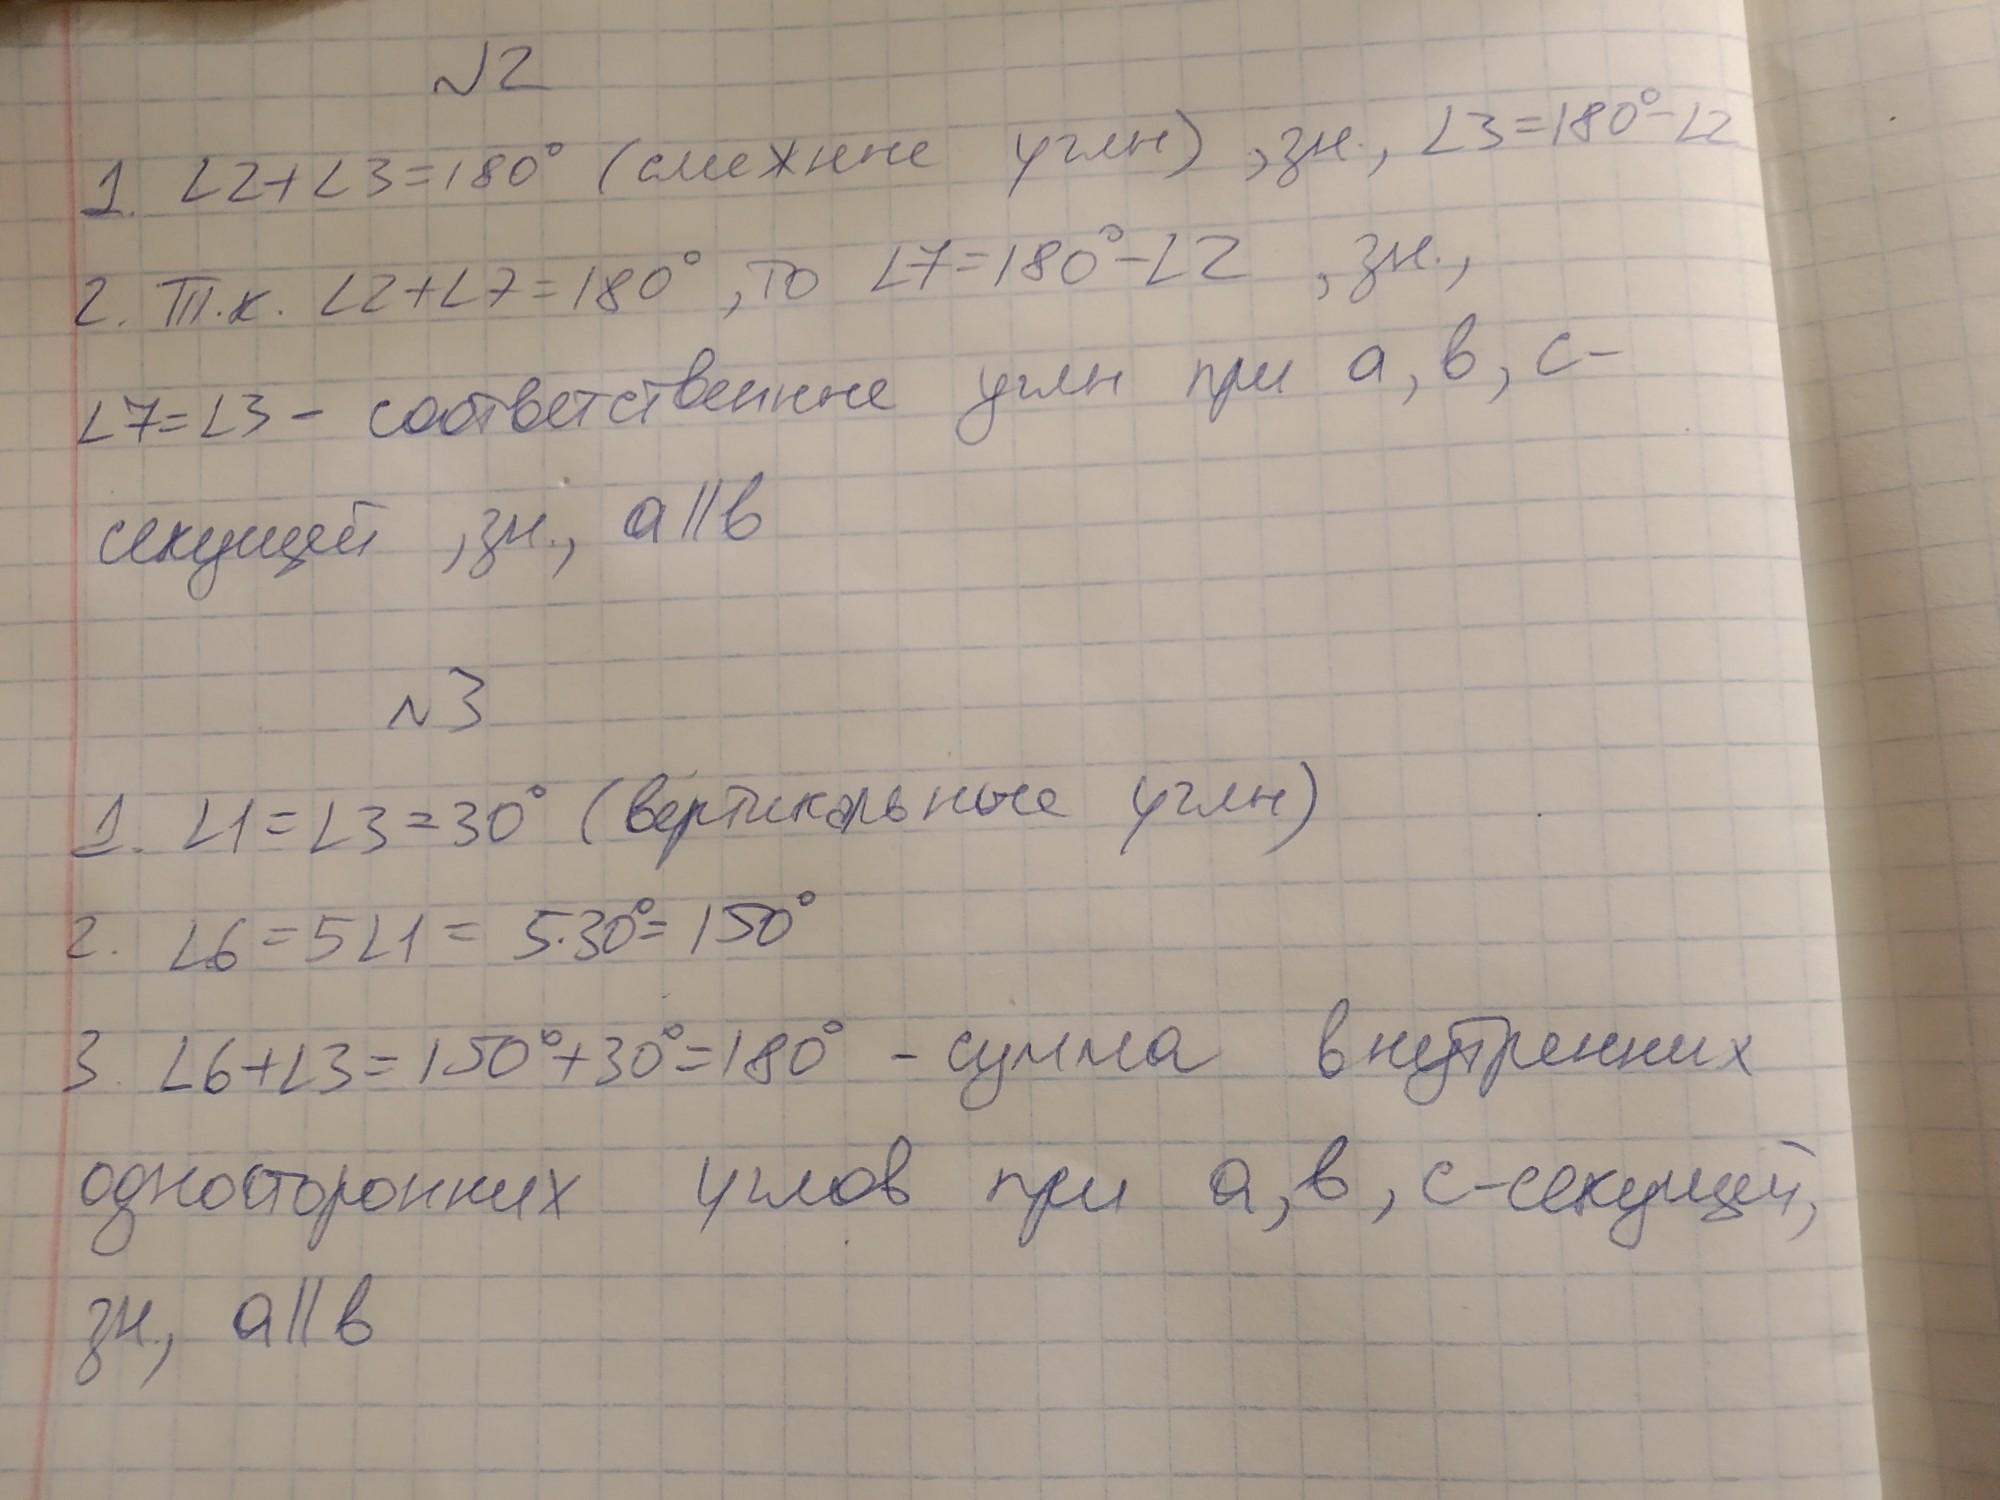 №2
1. ∠2+∠3=180° (смежные углы), зн., ∠3=180°-∠2
2. Т.к. ∠2+∠7=180°, то ∠7=180°-∠2, зн.,
∠7=∠3 - соответственные углы при a, b, c-
секущей, зн., a||b
№3
1. ∠1=∠3=30° (вертикальные углы)
2. ∠6=5∠1= 5·30°=150°
3. ∠6+∠3=150°+30°=180° - сумма внутренних
односторонних углов при a, b, c-секущей,
зн., a||b